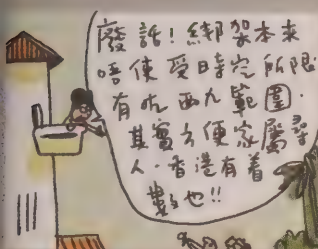 廢話！綁架本來
唔使受時空所限
有冇西九範圍．
其實方便家屬尋
人．香港有着
也!!